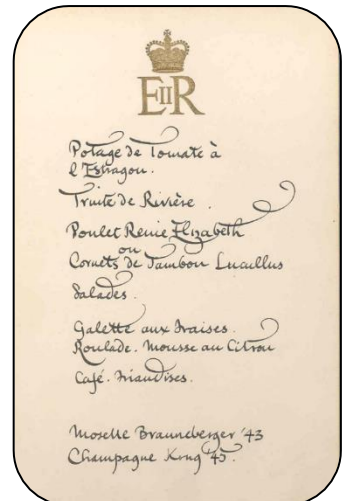 EIIR
Potage de Tomate à
l'Estragon.
Truite de Rivière.
Poulet Reine Elizabeth
ou
Cornets de Jambon Lucullus
Salades.
Galette aux Fraises.
Roulade. Mousse au Citron
Café. Friandises.
Moselle Brauneberger '43
Champagne Krug '45.